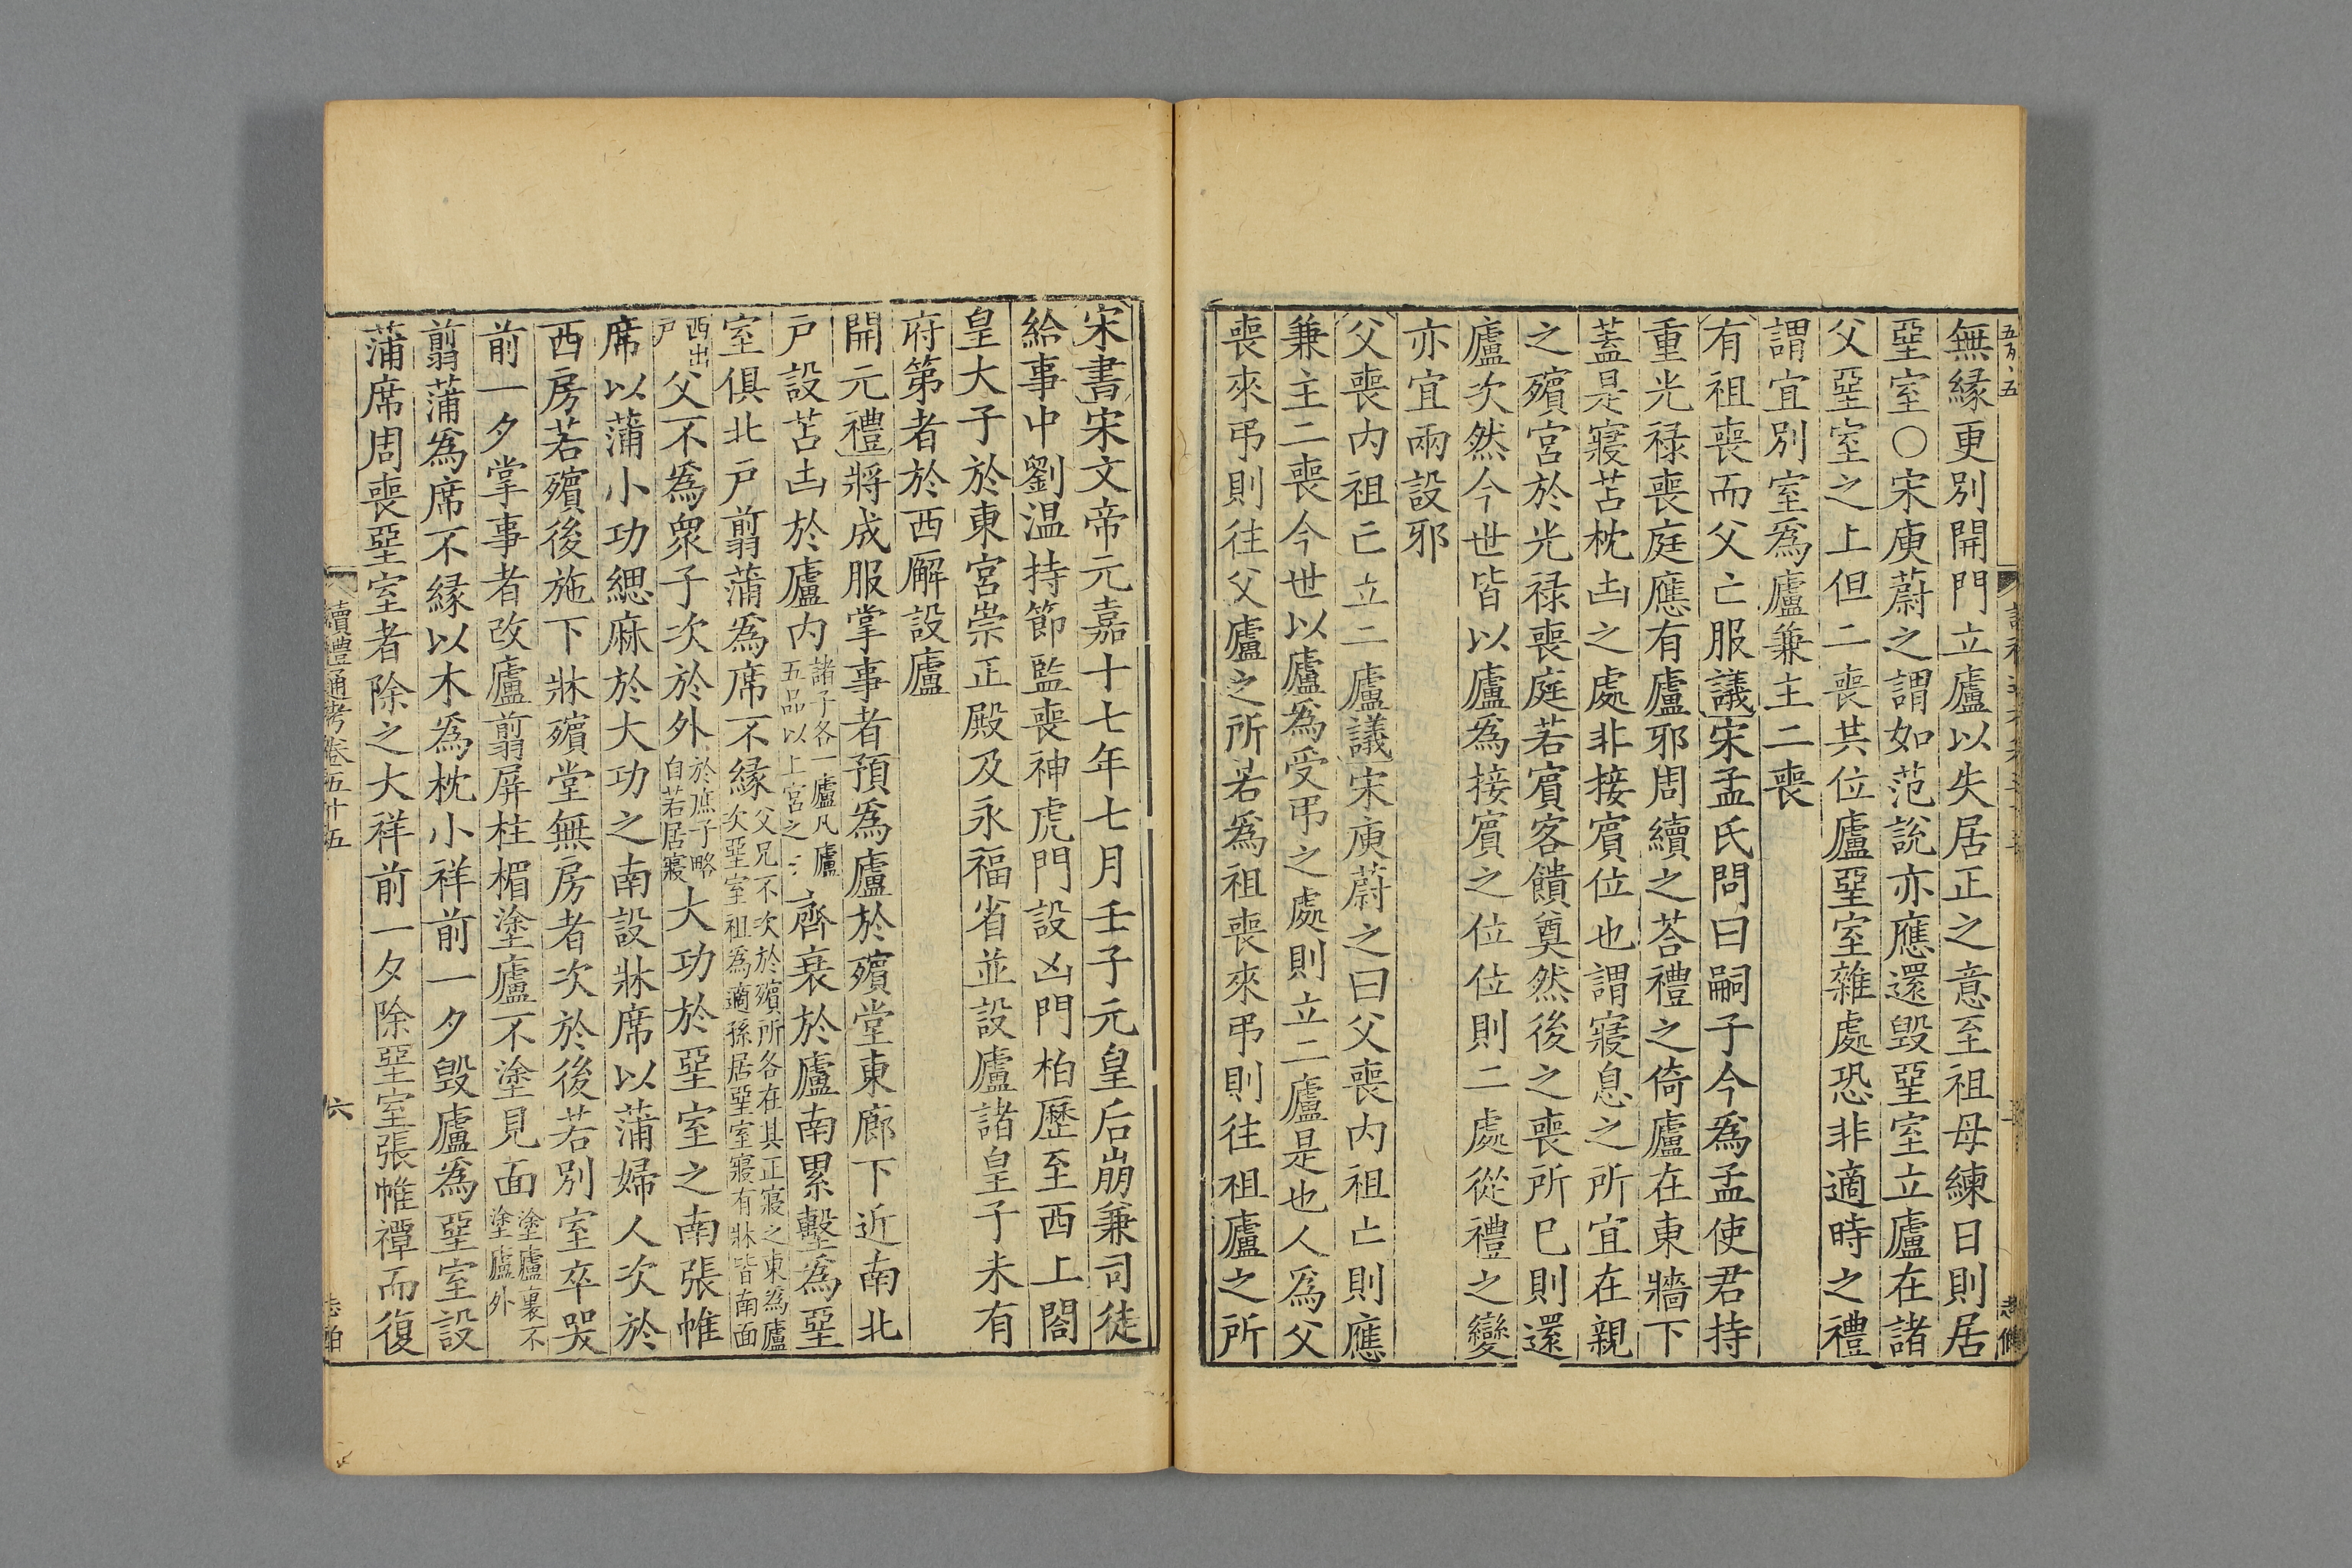 無緣更別開門立廬以失居正之意至祖母練日則居
堊室○宋庾蔚之謂如范說亦應還毀堊室立廬在諸
父堊室之上但二喪共位廬堊室雜處恐非適時之禮
謂宜別室爲廬兼主二喪
有祖喪而父亡服議宋孟氏問曰嗣子今爲孟使君持
重光禄喪庭應有廬邪周續之荅禮之倚廬在東牆下
蓋是寢苫枕凷之處非接賓位也謂寢息之所宜在親
之殯宮於光禄喪庭若賓客饋奠然後之喪所巳則還
廬次然今世皆以廬爲接賓之位位則二處從禮之變
亦宜兩設邪
父喪内祖亡立二廬議宋庾蔚之曰父喪内祖亡則應
兼主二喪今世以廬爲受弔之處則立二廬是也人爲父
喪來弔則往父廬之所若爲祖喪來弔則往祖廬之所
宋書宋文帝元嘉十七年七月壬子元皇后崩兼司徒
給事中劉温持節監喪神虎門設凶門柏歷至西上閤
皇大子於東宮崇正殿及永福省並設廬諸皇子未有
府第者於西廨設廬
開元禮將成服掌事者預爲廬於殯堂東廊下近南北
戶設苫凷於廬内諸子各一廬凡廬五品以上宮之齊衰於廬南累墼爲堊
室俱北戶翦蒲爲席不緣父兄不次於殯所各在其正寢之東爲廬次堊室祖爲適孫居堊室寢有牀皆南面
西出戶父不爲衆子次於外於庶子略自若居寢大功於堊室之南張帷
席以蒲小功緦麻於大功之南設牀席以蒲婦人次於
西房若殯後施下牀殯堂無房者次於後若別室卒哭
前一夕掌事者改廬翦屏柱楣塗廬不塗見面塗廬裏不塗廬外
翦蒲爲席不緣以木爲枕小祥前一夕毀廬爲堊室設
蒲席周喪堊室者除之大祥前一夕除堊室張帷禫而復
續禮通考卷五十五
六